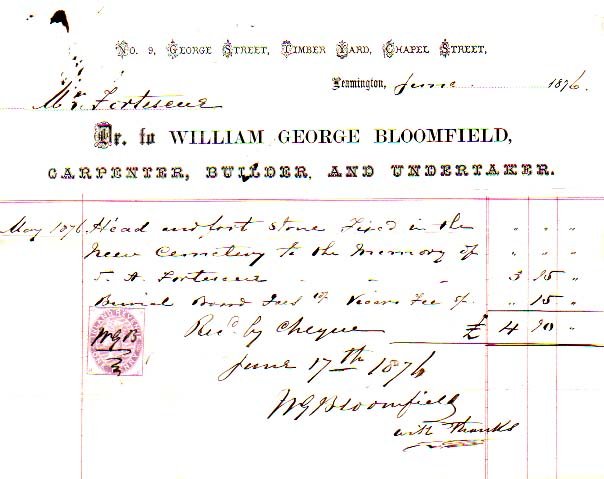 No. 9, George Street, Timber Yard, Chapel Street,
Leamington, June 1876.
Mr. Fortescue
Dr. to WILLIAM GEORGE BLOOMFIELD,
CARPENTER, BUILDER, AND UNDERTAKER.
May 1876 Head and foot stone Fixed in the " " "
New Cemetery to the Memory of " " "
Fortescue 3 15 "
Burial Board Fees & Vicars Fee " 15 "
Recd by Cheque £ 4 10 "
INLAND REVENUE
WGB
June 17th 1876
WGBloomfield
with Thanks